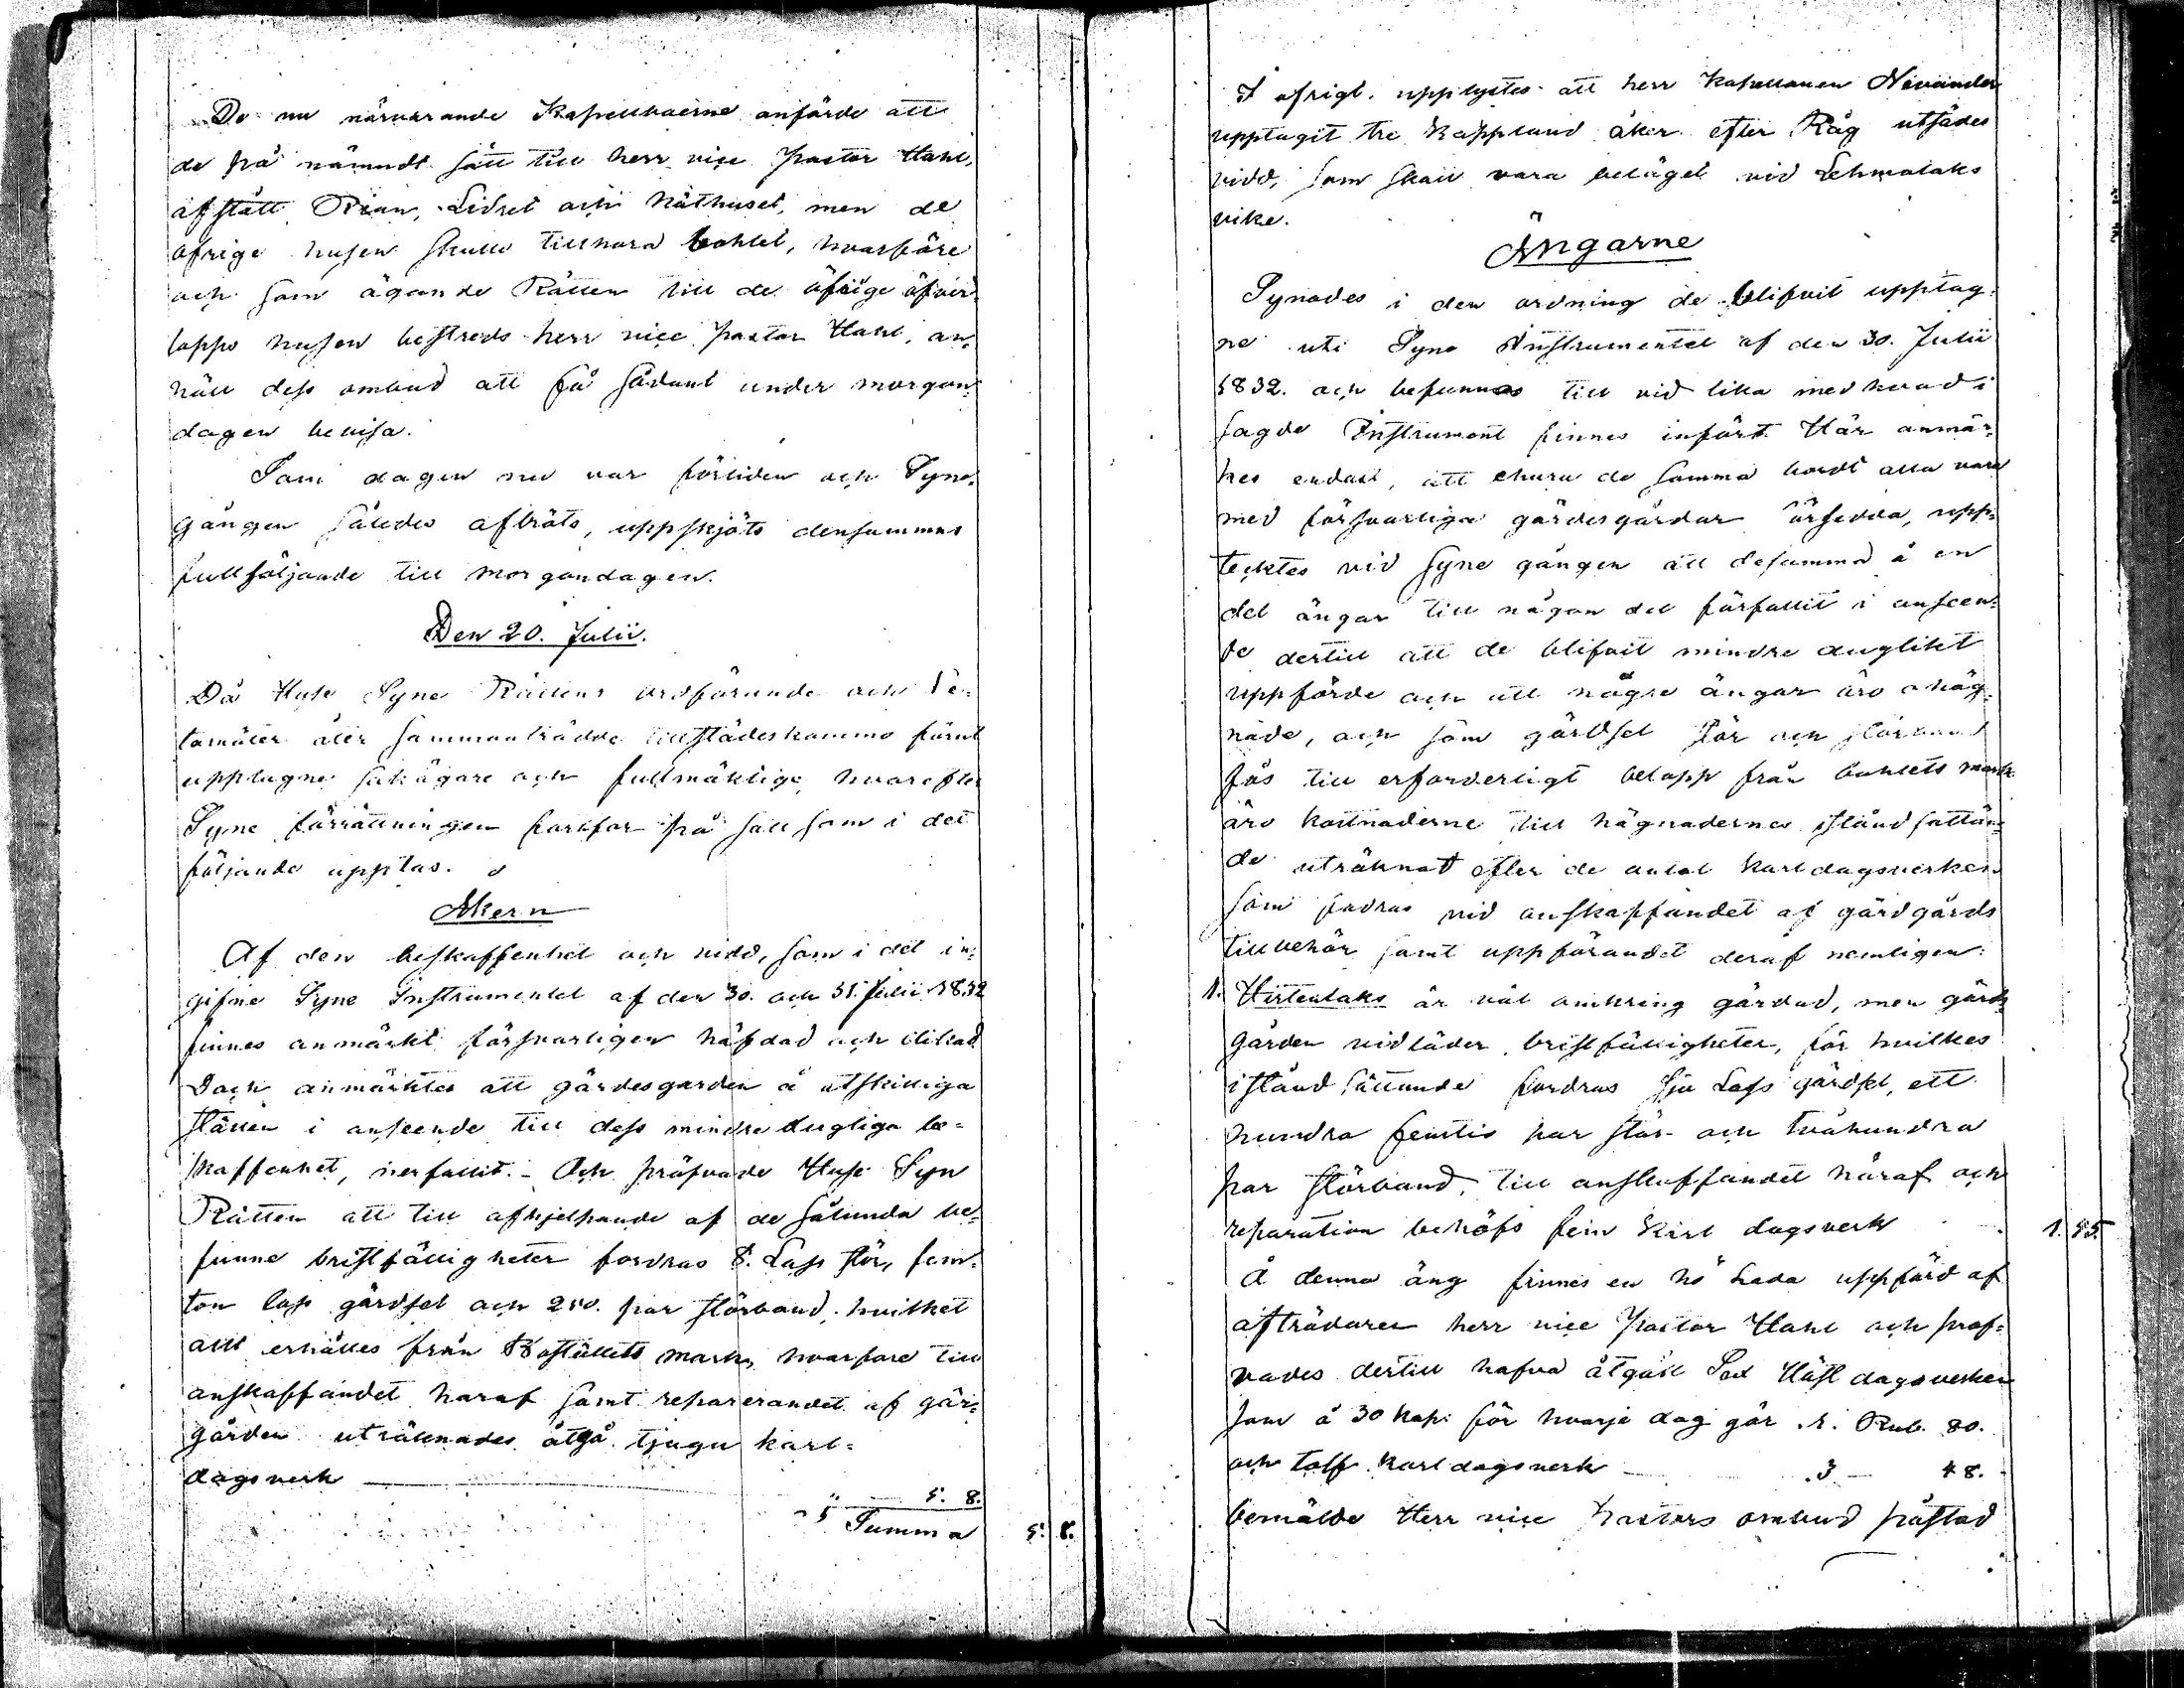 De nu närvarande Kapellboerne anförde att
de på nämndt sätt till herr vice pastor Hahl,
afstått Rian, Lidret och Köthuset, men de
öfrige husen skulle tillhöra bohlet, hvarföre
och som ägande Rätten till de öfrige öfver
lopps husen bestreds herr vice pastor Hahl, an-
höll dess ombud att få sådant under morgon-
dagen bevisa.
Som dagen nu var förliden och Syne-
gången således afbröts, uppskjöts densammas
fullföljande till morgondagen.
Den 20. Julii.
Då Huse Syne Rättens ordförande och Le-
damöter åter sammanträdde tillstädeskommo förut
upptagne sakägare och fullmäktige, hvarefter
Syne förrättningen fortfor på sätt som i det
följande upptas.
Åkern
Af den beskaffenhet och vidd, som i det in-
gifne Syne Instrumentet af den 30. och 31. Julii 1832
finnes anmärkt försvarligen häfdad och dikad
Dock anmärktes att gärdesgården å åtskilliga
ställen i anseende till dess mindre dugliga be-
skaffenhet, nerfallit. - Och pröfvade Huse Syn
Rätten att till afhjelpande af de sålunda be-
funne bristfälligheter fordras 8. Lass stör, fem-
ton lass gärdsel och 250. par störband, hvilket
allt erhålles från Boställets mark, hvarföre till
anskaffandet häraf samt reparerandet af gär-
gården uträknades åtgå tjugu karl-
dagsverk 5. 8.
Summa 5. 8.
I öfrigt upplystes att herr Kapellanen Nevander
upptagit tre Kappland åker efter Råg utsädes
vidd, som skall vara beläget vid Lehmälaks
vike.
Ängarne
Synades i den ordning de blifvit upptag-
ne uti Syne Instrumentet af den 30. Julii
1832. och befunnos till vid lika med hvad i
sagde Instrument finnes infört. Här anmär-
kes endast, att ehuru de samma bordt alla vara
med försvarliga gärdesgårdar försedda, upp-
täcktes vid syne gången att desamma å en
del ängar till någon del förfallit i anseen-
de dertill att de blifvit mindre duglikt
uppförde och att någre ängar äro ohäg-
nade, och som gärdsel stör och störband
fås till erforderligt belopp från bohlets mark
äro kostnaderne till hägnadernes iståndsättan-
de uträknat efter de antal karldagsverken
som fodras vid anskaffandet af gärdgårds
tillbehör samt uppförandet deraf nemligen:
1. Hirtenlaks är väl omkring gärdad, men gärd-
gården vidlåder bristfälligheter, för hvilkes
istånd sättande fordras sju Lass gärdsel, ett
hundra femtio par stör och tvåhundra
par störband, till anskaffandet häraf och
reparation behöfs fem karl dagsverk 1. 55.
Å denna äng finnes en hö Lada uppförd af
afträdaren herr vice Pastor Hahl och pröf-
vades dertill hafva åtgått Sex Häst dagsverken
som à 30 kop. för hvarje dag gör .1. Rub. 80.
och tolf karldagsverk 3 48.
bemälde Herr vice Pastors ombud påstod